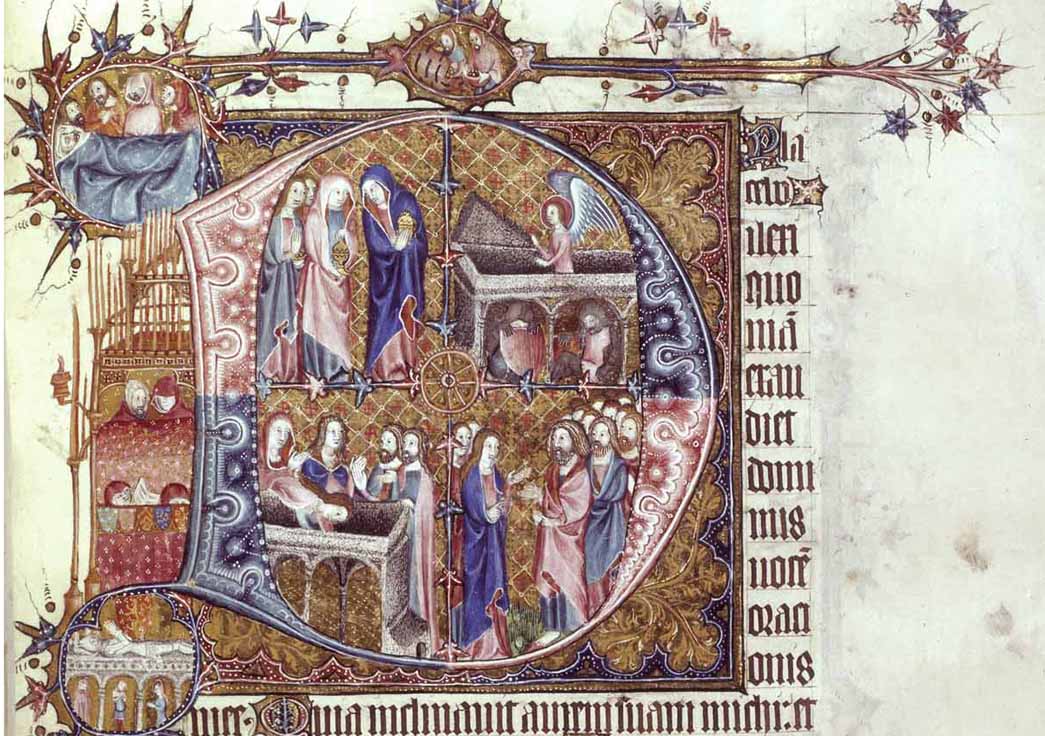 Pla
cebo
Dilexi
quo
niā
exau
diet
domi
nus
uocē
oraci
onis
mee. Quia inclinauit aurem suam michi: et